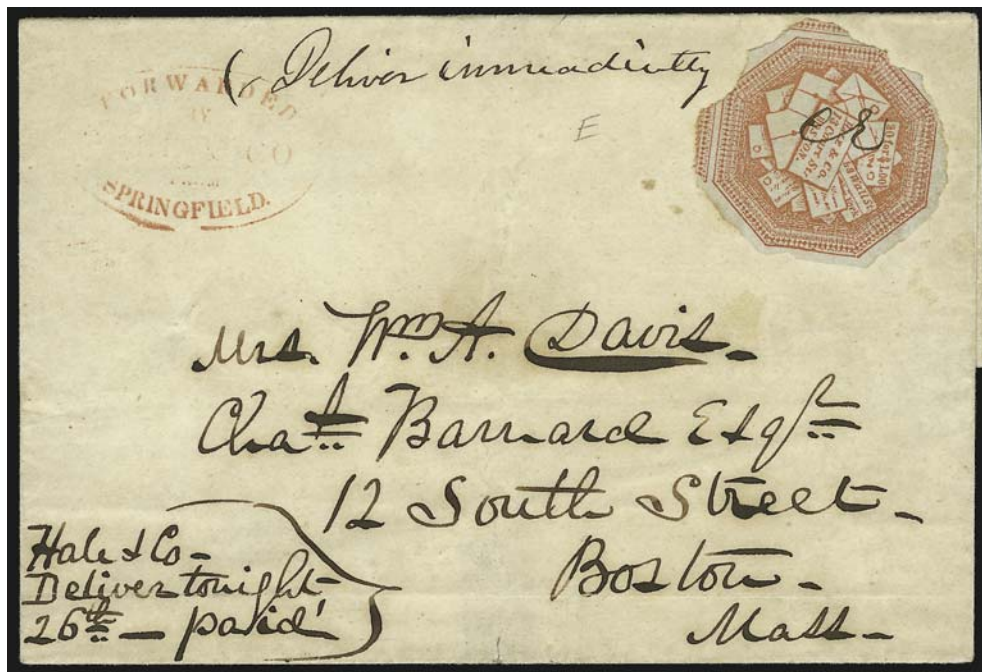 Deliver immeadiatly
FORWARDED
BY
CO
FROM
SPRINGFIELD.
E
20 for $1.00
& Co.
Court St.
BOSTON.
Mrs. Wm. A. Davis.
Chas. Barnard Esqr
12 South Street
Boston
Mass
Hale & Co
Deliver tonight
26th paid